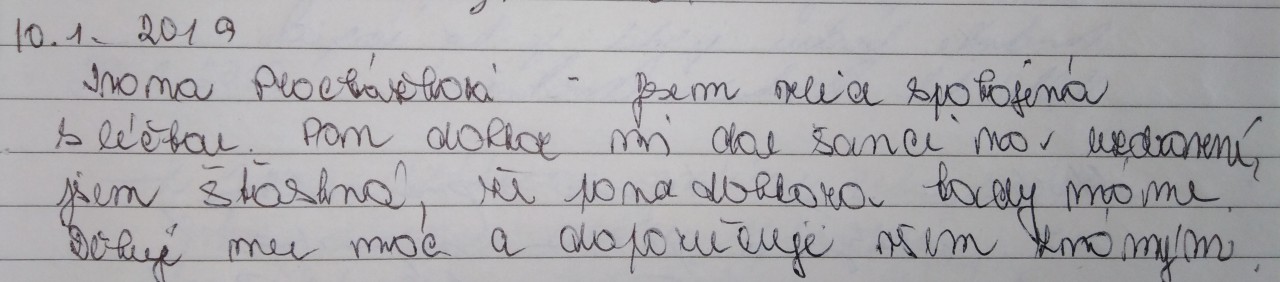 10.1. 2019
Ivona Procházková - jsem velice spokojená
s léčbou. Pan doktor mi dal šanci na uzdravení,
jsem šťastná, že pana doktora tady máme.
Děkuji mu moc a doporučuji všem známým.